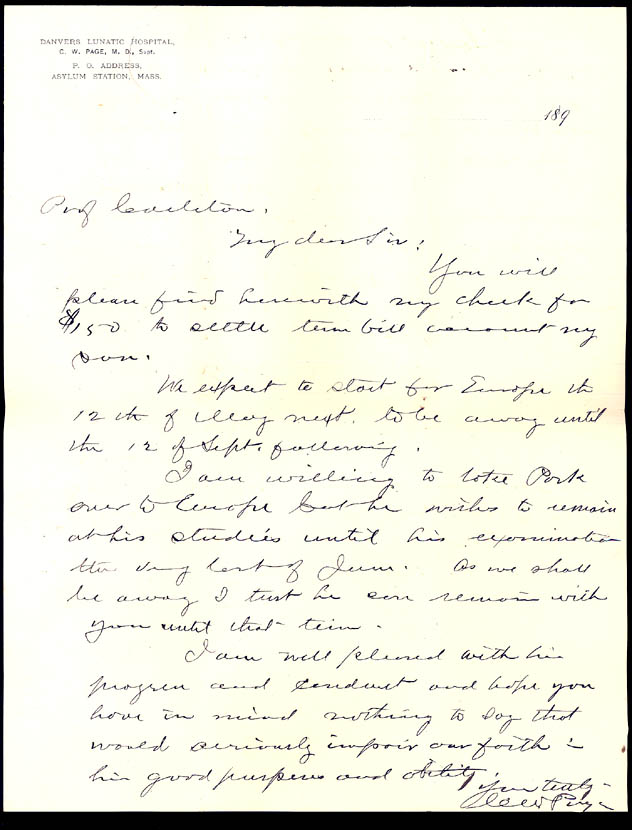 DANVERS LUNATIC HOSPITAL,
C. W. PAGE, M. D., Supt.
P. O. ADDRESS,
ASYLUM STATION, MASS.
189
Prof Carleton.
My dear Sir:
You will
please find herewith my check for
$150 to settle term bill account my
son.
We expect to start for Europe the
12th of May next. to be away until
the 12 of Sept. following.
I am willing to take Park
over to Europe but he wishes to remain
at his studies until his examination
the very last of June. As we shall
be away I trust he can remain with
you until that time.
I am well pleased with his
progress and conduct and hope you
have in mind nothing to say that
would seriously impair our faith in
his good purposes and ability.
Yours truly
C W Page